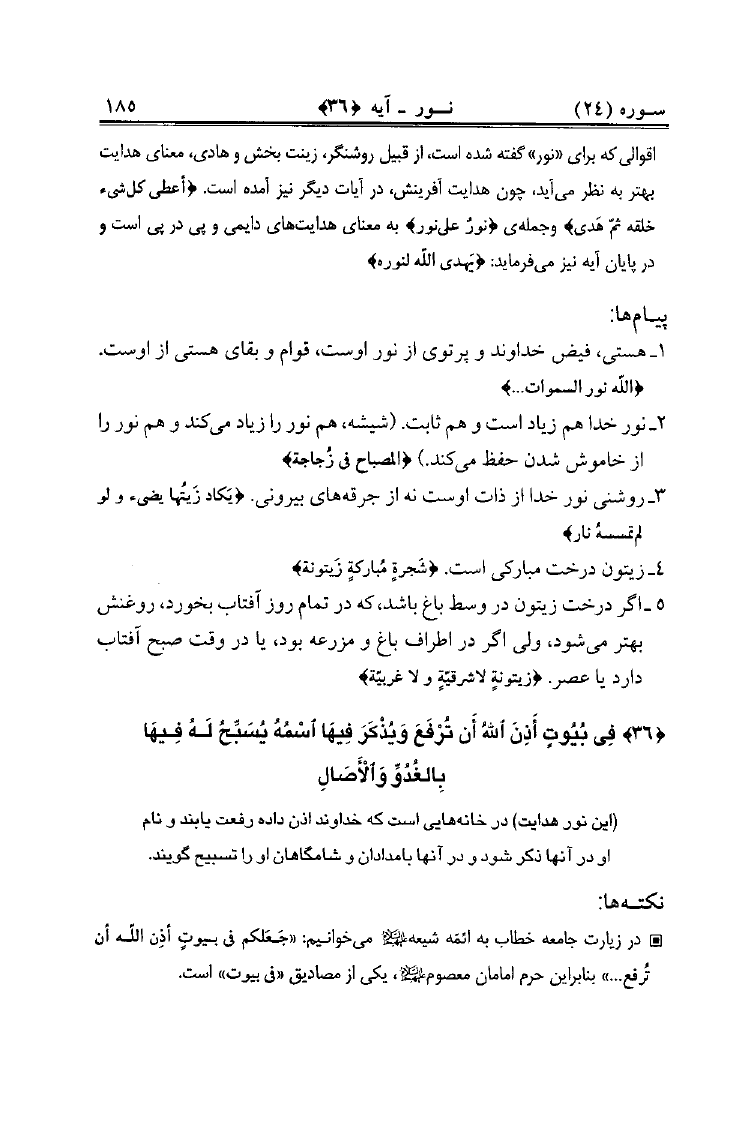 سوره (٢٤) نور - آیه ﴿٣٦﴾ ١٨٥
اقوالی که برای «نور» گفته شده است، از قبیل روشنگر، زینت بخش و هادی، معنای هدایت
بهتر به نظر می‌آید، چون هدایت آفرینش، در آیات دیگر نیز آمده است. ﴿أعطی کل‌شیء
خلقه ثمّ هَدی﴾ وجمله‌ی ﴿نورٌ علی‌نور﴾ به معنای هدایت‌های دایمی و پی در پی است و
در پایان آیه نیز می‌فرماید: ﴿یَهدی اللّه لنوره﴾
پیام‌ها:
١ـ هستی، فیض خداوند و پرتوی از نور اوست، قوام و بقای هستی از اوست.
﴿اللّه نور السموات...﴾
٢ـ نور خدا هم زیاد است و هم ثابت. (شیشه، هم نور را زیاد می‌کند و هم نور را
از خاموش شدن حفظ می‌کند.) ﴿المصباح فی زُجاجة﴾
٣ـ روشنی نور خدا از ذات اوست نه از جرقه‌های بیرونی. ﴿یَکاد زَیتُها یضیء و لو
لم‌تمسسهُ نار﴾
٤ـ زیتون درخت مبارکی است. ﴿شَجرةٍ مُبارکةٍ زَیتونة﴾
٥ ـ اگر درخت زیتون در وسط باغ باشد، که در تمام روز آفتاب بخورد، روغنش
بهتر می‌شود، ولی اگر در اطراف باغ و مزرعه بود، یا در وقت صبح آفتاب
دارد یا عصر. ﴿زیتونةٍ لاشرقیّةٍ و لا غربیّة﴾
﴿٣٦﴾ فِی بُیُوتٍ أَذِنَ ٱللهُ أَن تُرْفَعَ وَیُذْکَرَ فِیهَا ٱسْمُهُ یُسَبِّحُ لَـهُ فِـیهَا
بِالغُدُوِّ وَٱلْأَصَالِ
(این نور هدایت) در خانه‌هایی است که خداوند اذن داده رفعت یابند و نام
او در آنها ذکر شود و در آنها بامدادان و شامگاهان او را تسبیح گویند.
نکته‌ها:
▣ در زیارت جامعه خطاب به ائمّه شیعه علیهم السلام می‌خوانیم: «جَعَلکم فی بـیوتٍ أذِن اللّـه أن
تُرفع...» بنابراین حرم امامان معصوم علیهم السلام، یکی از مصادیق «فی بیوت» است.